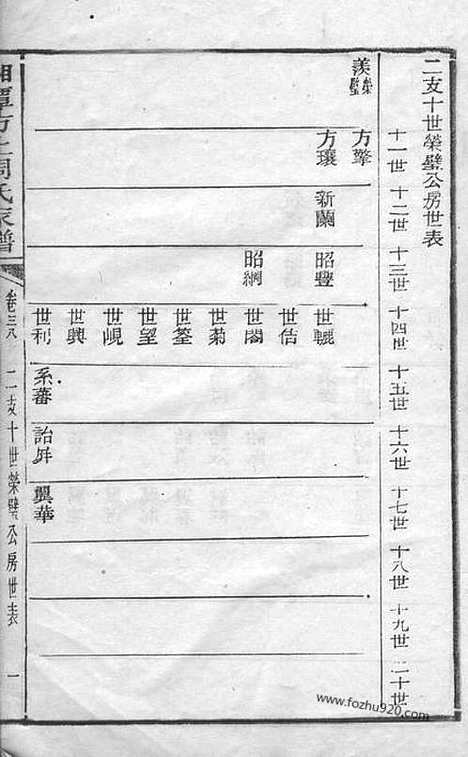 二支十世榮璧公房世表
十一世 十二世 十三世 十四世 十五世 十六世 十七世 十八世 十九世 二十世
方擎
方瓖 新蘭 昭豐 世轆
世佶
昭綱 世閣
世菊
世筌
世望
世峴
世興
世利 系蕃 詒屏 巽華
湘潭 周氏家譜
卷三八 二支十世榮璧公房世表 一
www.fozhu920.com